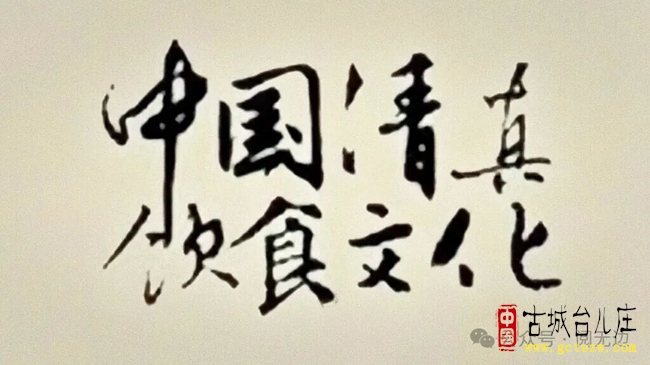 中国清真
饮食文化
中国 古城台儿庄
公众号·阅无边
www.gctezw.com